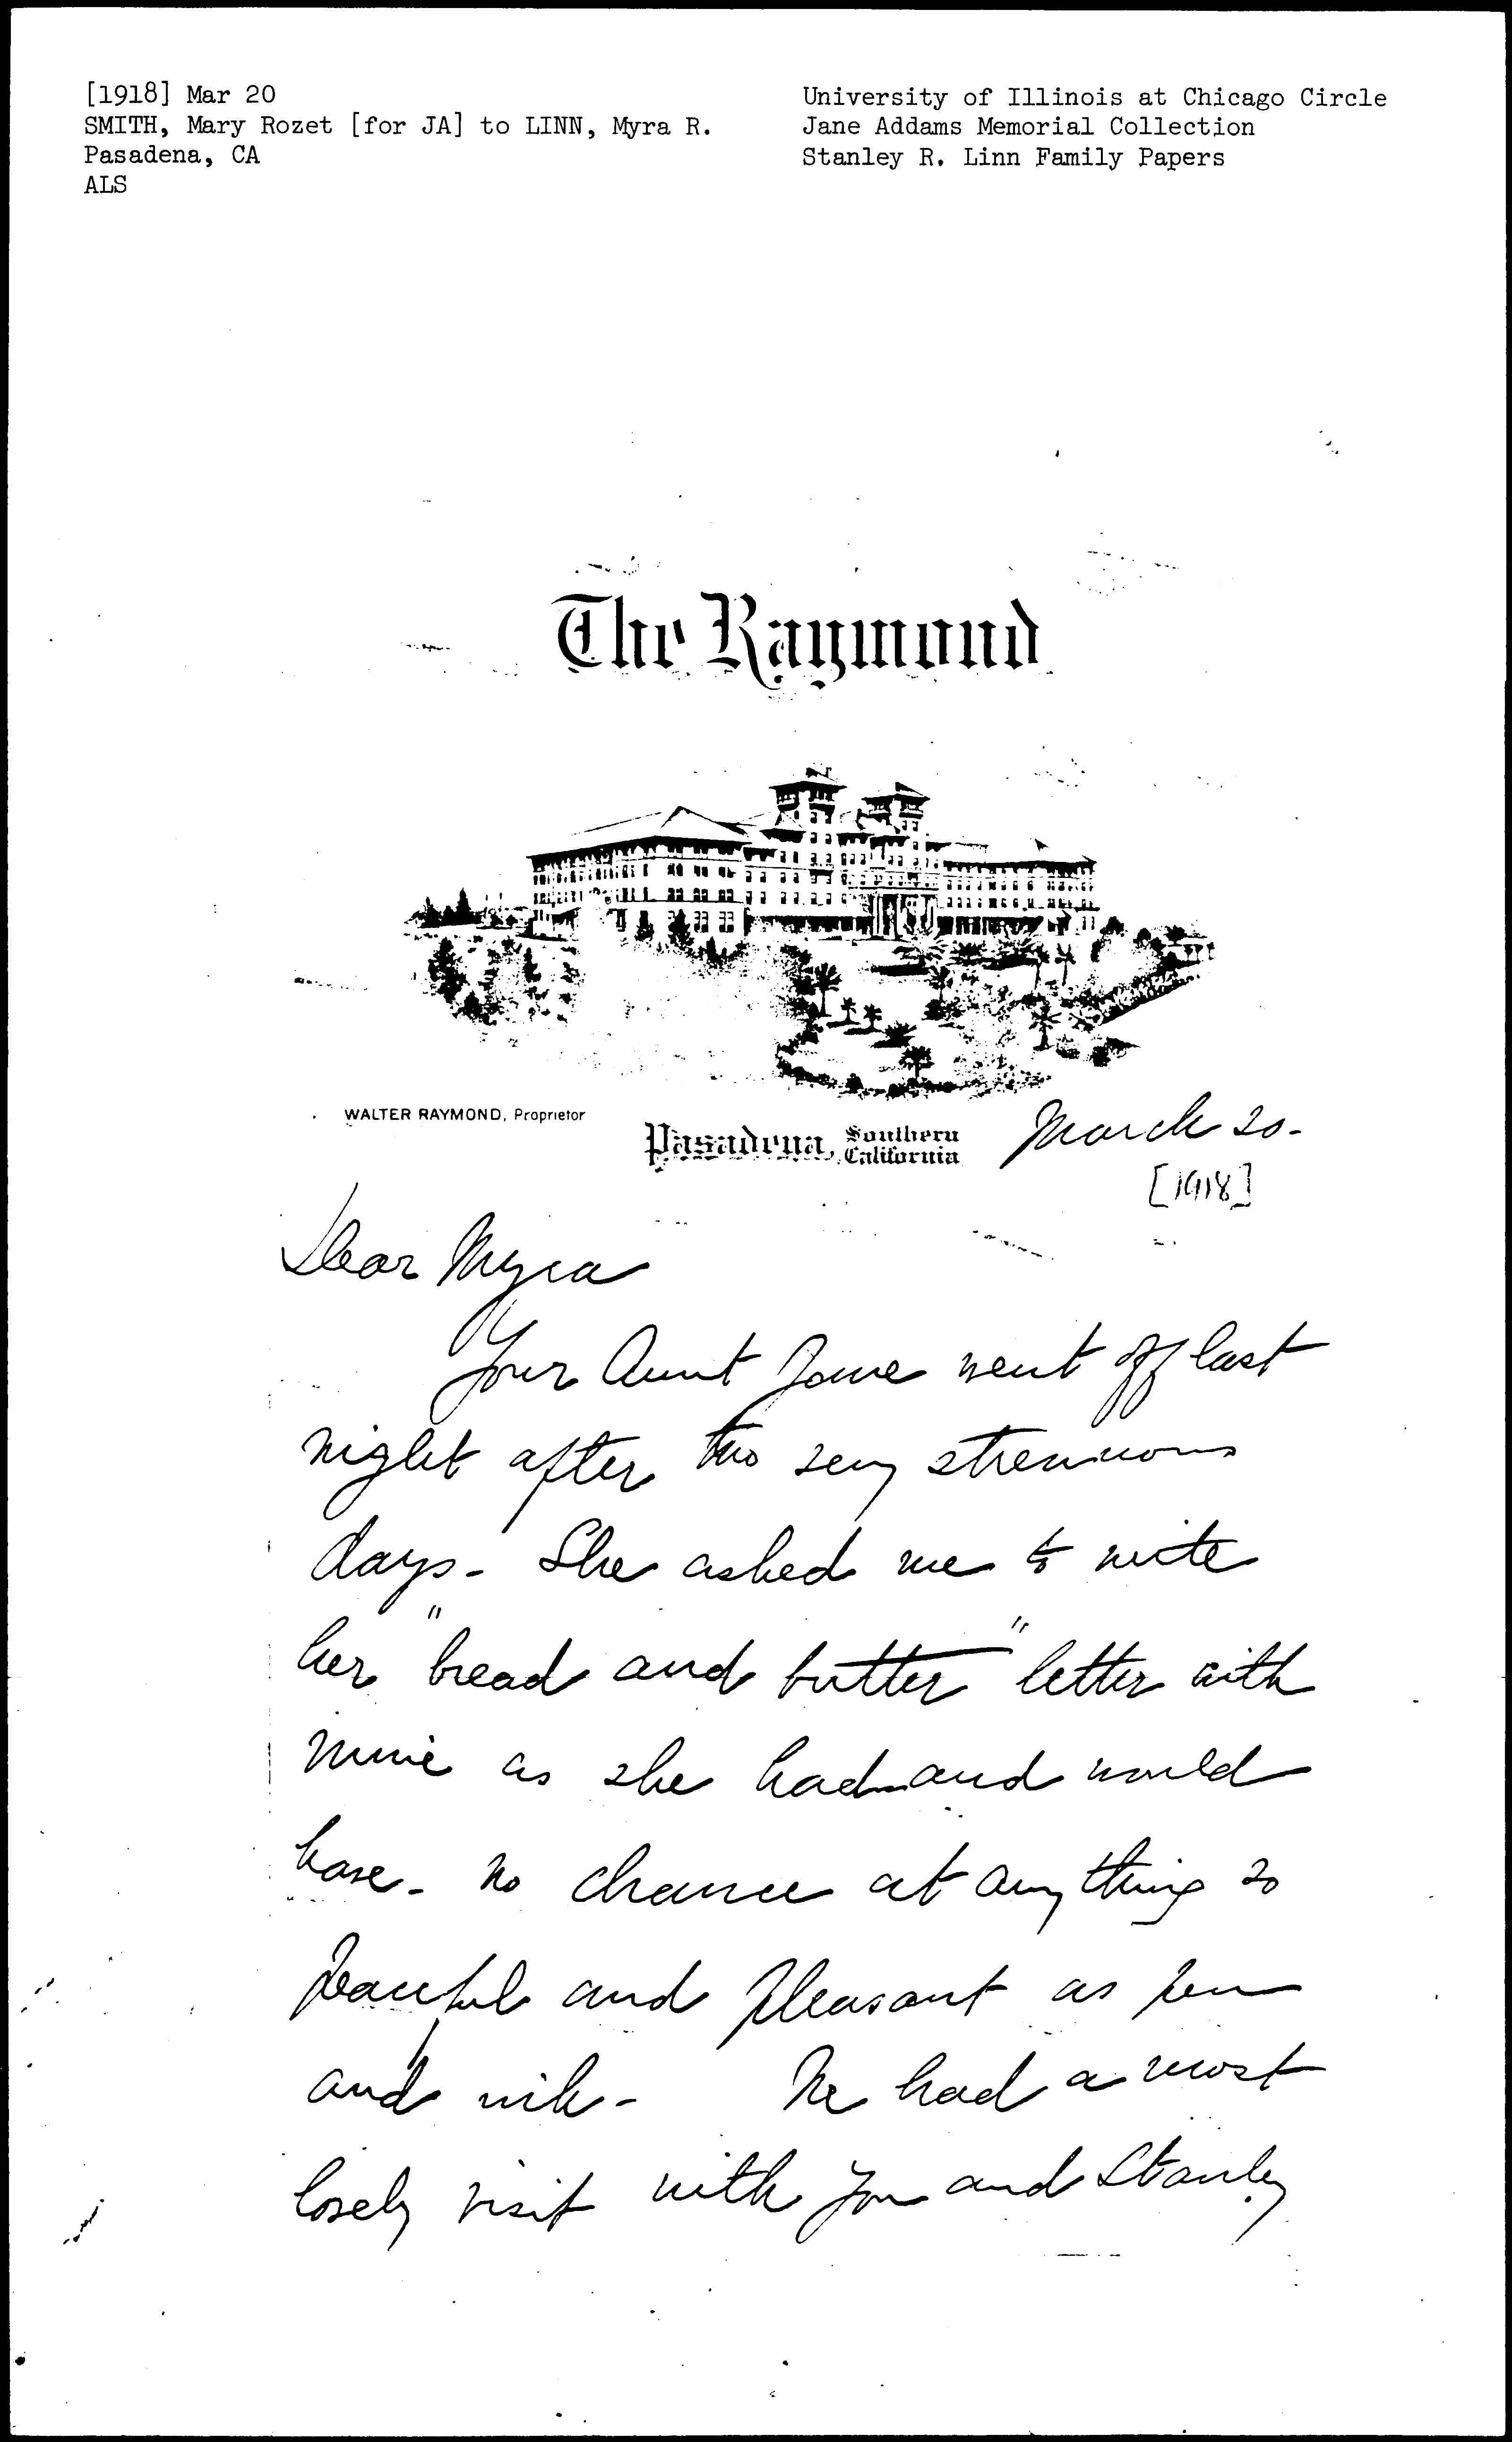 [1918] Mar 20
SMITH, Mary Rozet [for JA] to LINN, Myra R.
Pasadena, CA
ALS
University of Illinois at Chicago Circle
Jane Addams Memorial Collection
Stanley R. Linn Family Papers
The Raymond
WALTER RAYMOND, Proprietor
Pasadena, Southern California
March 20-
[1918]
Dear Myra
Your Aunt Jane went off last
night after two very strenuous
days - She asked me to write
her "bread and butter" letter with
mine as she had and would
have - no chance at any thing so
peaceful and pleasant as pen
and ink - We had a most
lovely visit with you and Stanley